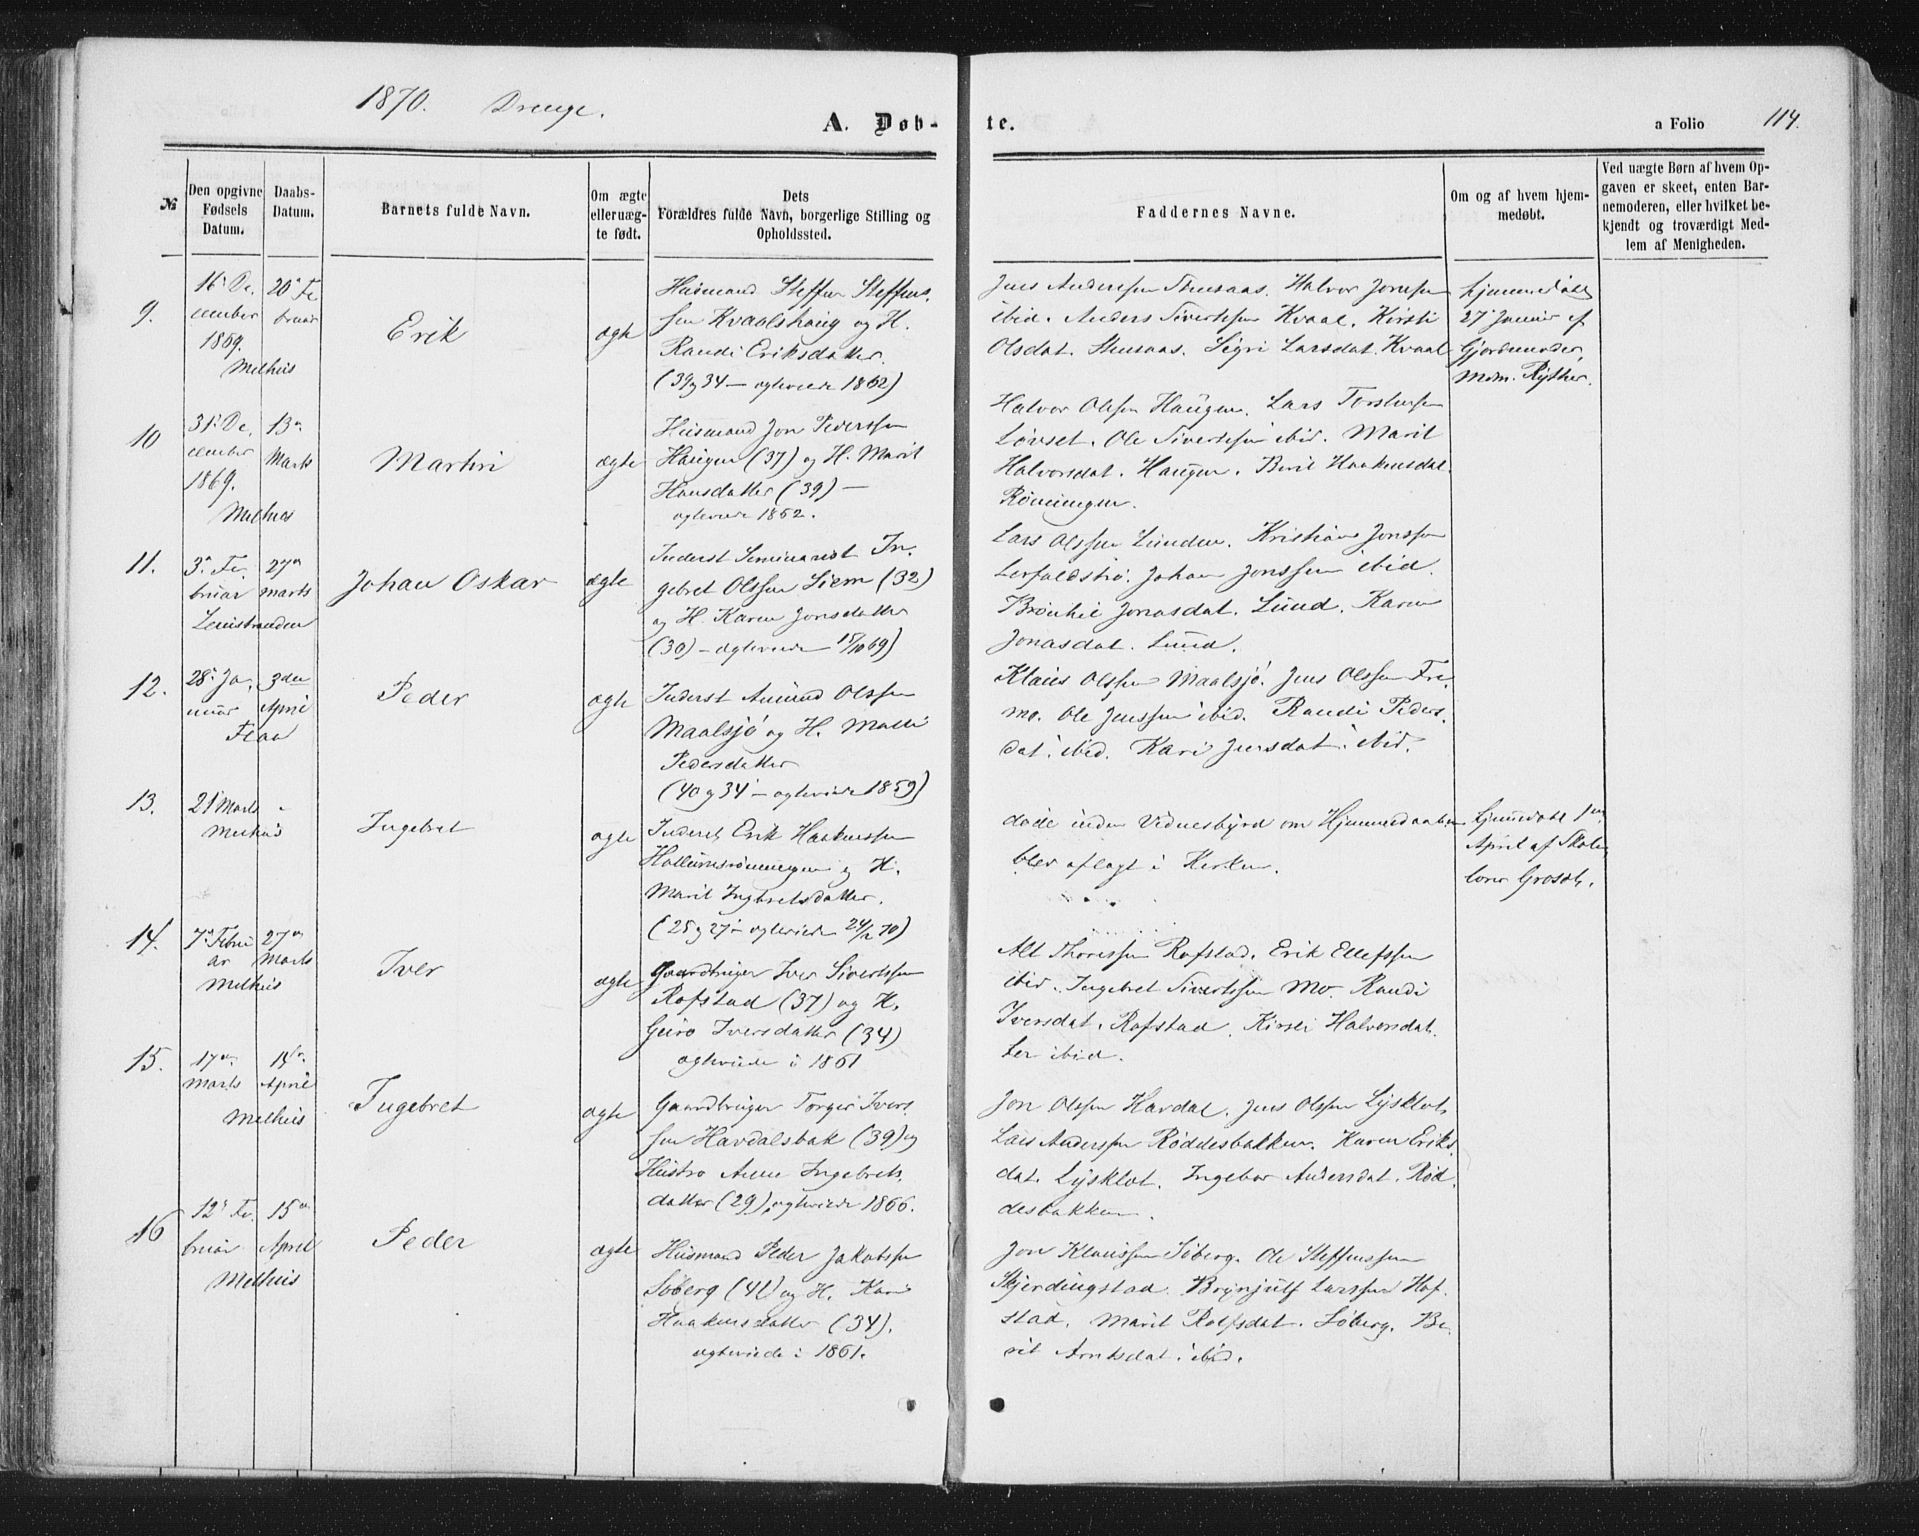 1870. Drenge.
A. Døb-
te.
a Folio 114.
№
Den opgivne Fødsels Datum.
Daabs-Datum.
Barnets fulde Navn.
Om ægte eller uæg-te født.
Dets Forældres fulde Navn, borgerlige Stilling og Opholdssted.
Faddernes Navne.
Om og af hvem hjem-medøbt.
Ved uægte Børn af hvem Op-gaven er skeet, enten Bar-nemoderen, eller hvilket be-kjendt og troværdigt Med-lem af Menigheden.
9.
16' De,
cember
1869.
Melhus
20' Fe
bruar
Erik
ægte
Husmand Steffen Steffens,
sen Kvaalshaug og H.
Randi Eriksdatter.
(39 og 34 – ægteviede 1862)
Jens Anderssen Thusaas. Halvor Jonssen
ibid. Anders Sivertssen Kvaal. Kirsti
Olsdat. Thusaas. Sigri Larsdat. Kvaal
hjemmedøbt
27' Januar af
Gjordmoder,
Mdm. Ryther.
10
31' De,
cember
1869.
Melhus
13de
Marts
Martin
ægte
Husmand Jon Pederssen
Haugen (37) og H. Marit
Hansdatter (39) –
ægteviede 1862.
Halvor Olssen Haugen. Lars
Løvset. Ole Sivertssen ibid. Marit
Halvorsdat. Haugen. Berit Haakensdat.
Rønningen.
11.
3' Fe,
bruar
Leinstranden
27de
Marts
Johan Oskar
ægte
Inderst Seminarist In,
gebret Olssen Siem (32)
og H. Karen Jonsdatter
(30) – ægteviede 15/10 69)
Lars Olssen Lunden. Kristian Jonssen
Johan Jonssen ibid.
Jonasdat. Lund. Karen
Jonasdat. Lund.
12.
28' Ja,
nuar
Flaa
3den
April
Peder
ægte
Inderst Amund Olssen
Maalsjø og H. Malli
Pedersdatter
(40 og 34 – ægteviede 1859)
Klaus Olssen Maalsjø. Jens Olssen Fre,
mo. Ole Jenssen ibid. Randi Peders,
dat. ibid. Kari Jensdat. ibid.
13.
21' Marts
Melhus
-
Ingebret
ægte
Inderst Erik Haakenssen
Hollumsrønningen og H.
Marit Ingebretsdatter.
(25 og 27 – ægteviede 24/2 70)
døde inden Vidnesbyrd om Hjemmedaaben
blev aflagt i Kirken.
hjemdøbt 1ste
April af Skole,
lærer Grosdt.
14.
7de Febru
ar
Melhus
27de
Marts
Iver
ægte
Gaardbruger Iver Sivertssen
Rofstad (37) og H.
Guro Iversdatter (34)
ægteviede i 1861
Alt Thoressen Rofstad. Erik Ellefssen
ibid. Ingebret Sivertssen Mo. Randi
Iversdat. Rofstad. Kirsti Halvorsdat
ter ibid.
15.
17de
Marts
Melhus
15de
April
Ingebret
ægte
Gaardbruger Torger Ivers,
sen Havdalsbak (39) og
Hustro Anne Ingebrets,
datter (29), ægteviede 1866.
Jon Olssen Havdal. Jens Olssen Lysklet.
Lars Anderssen Røddesbakken. Karen Eriks,
dat. Lysklet. Ingebor Andersdat. Rød,
desbakken.
16
12' Fe,
bruar
Melhus
15de
April
Peder
ægte
Husmand Peder Jakobssen
Søberg (41) og H. Kari
Haakensdatter (34).
ægteviede i 1861.
Jon Klaussen Søberg. Ole Steffenssen
Skjerdingstad. Brynjulf Larssen Hof,
stad. Marit Rolfsdat. Søberg. Be,
rit Arntsdat. ibid.